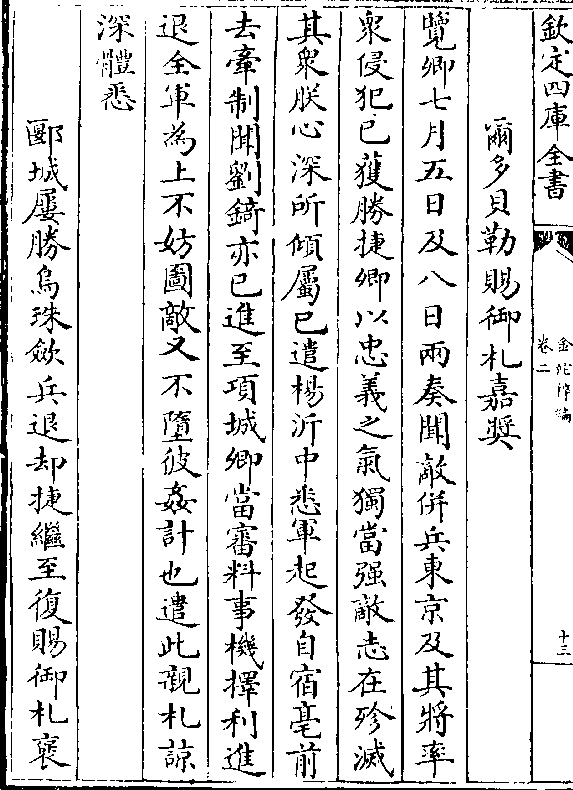 欽定四庫全書
金佗稡編
卷二
十三
爾多貝勒賜御札嘉奬
覽卿七月五日及八日兩奏聞敵併兵東京及其將率
衆侵犯已獲勝捷卿以忠義之氣獨當强敵志在殄滅
其衆朕心深所傾屬已遣楊沂中悉軍起發自宿亳前
去牽制聞劉錡亦已進至項城卿當審料事機擇利進
退全軍為上不妨圖敵又不墮彼姦計也遣此親札諒
深體悉
郾城屢勝烏珠斂兵退却捷繼至復賜御札褒